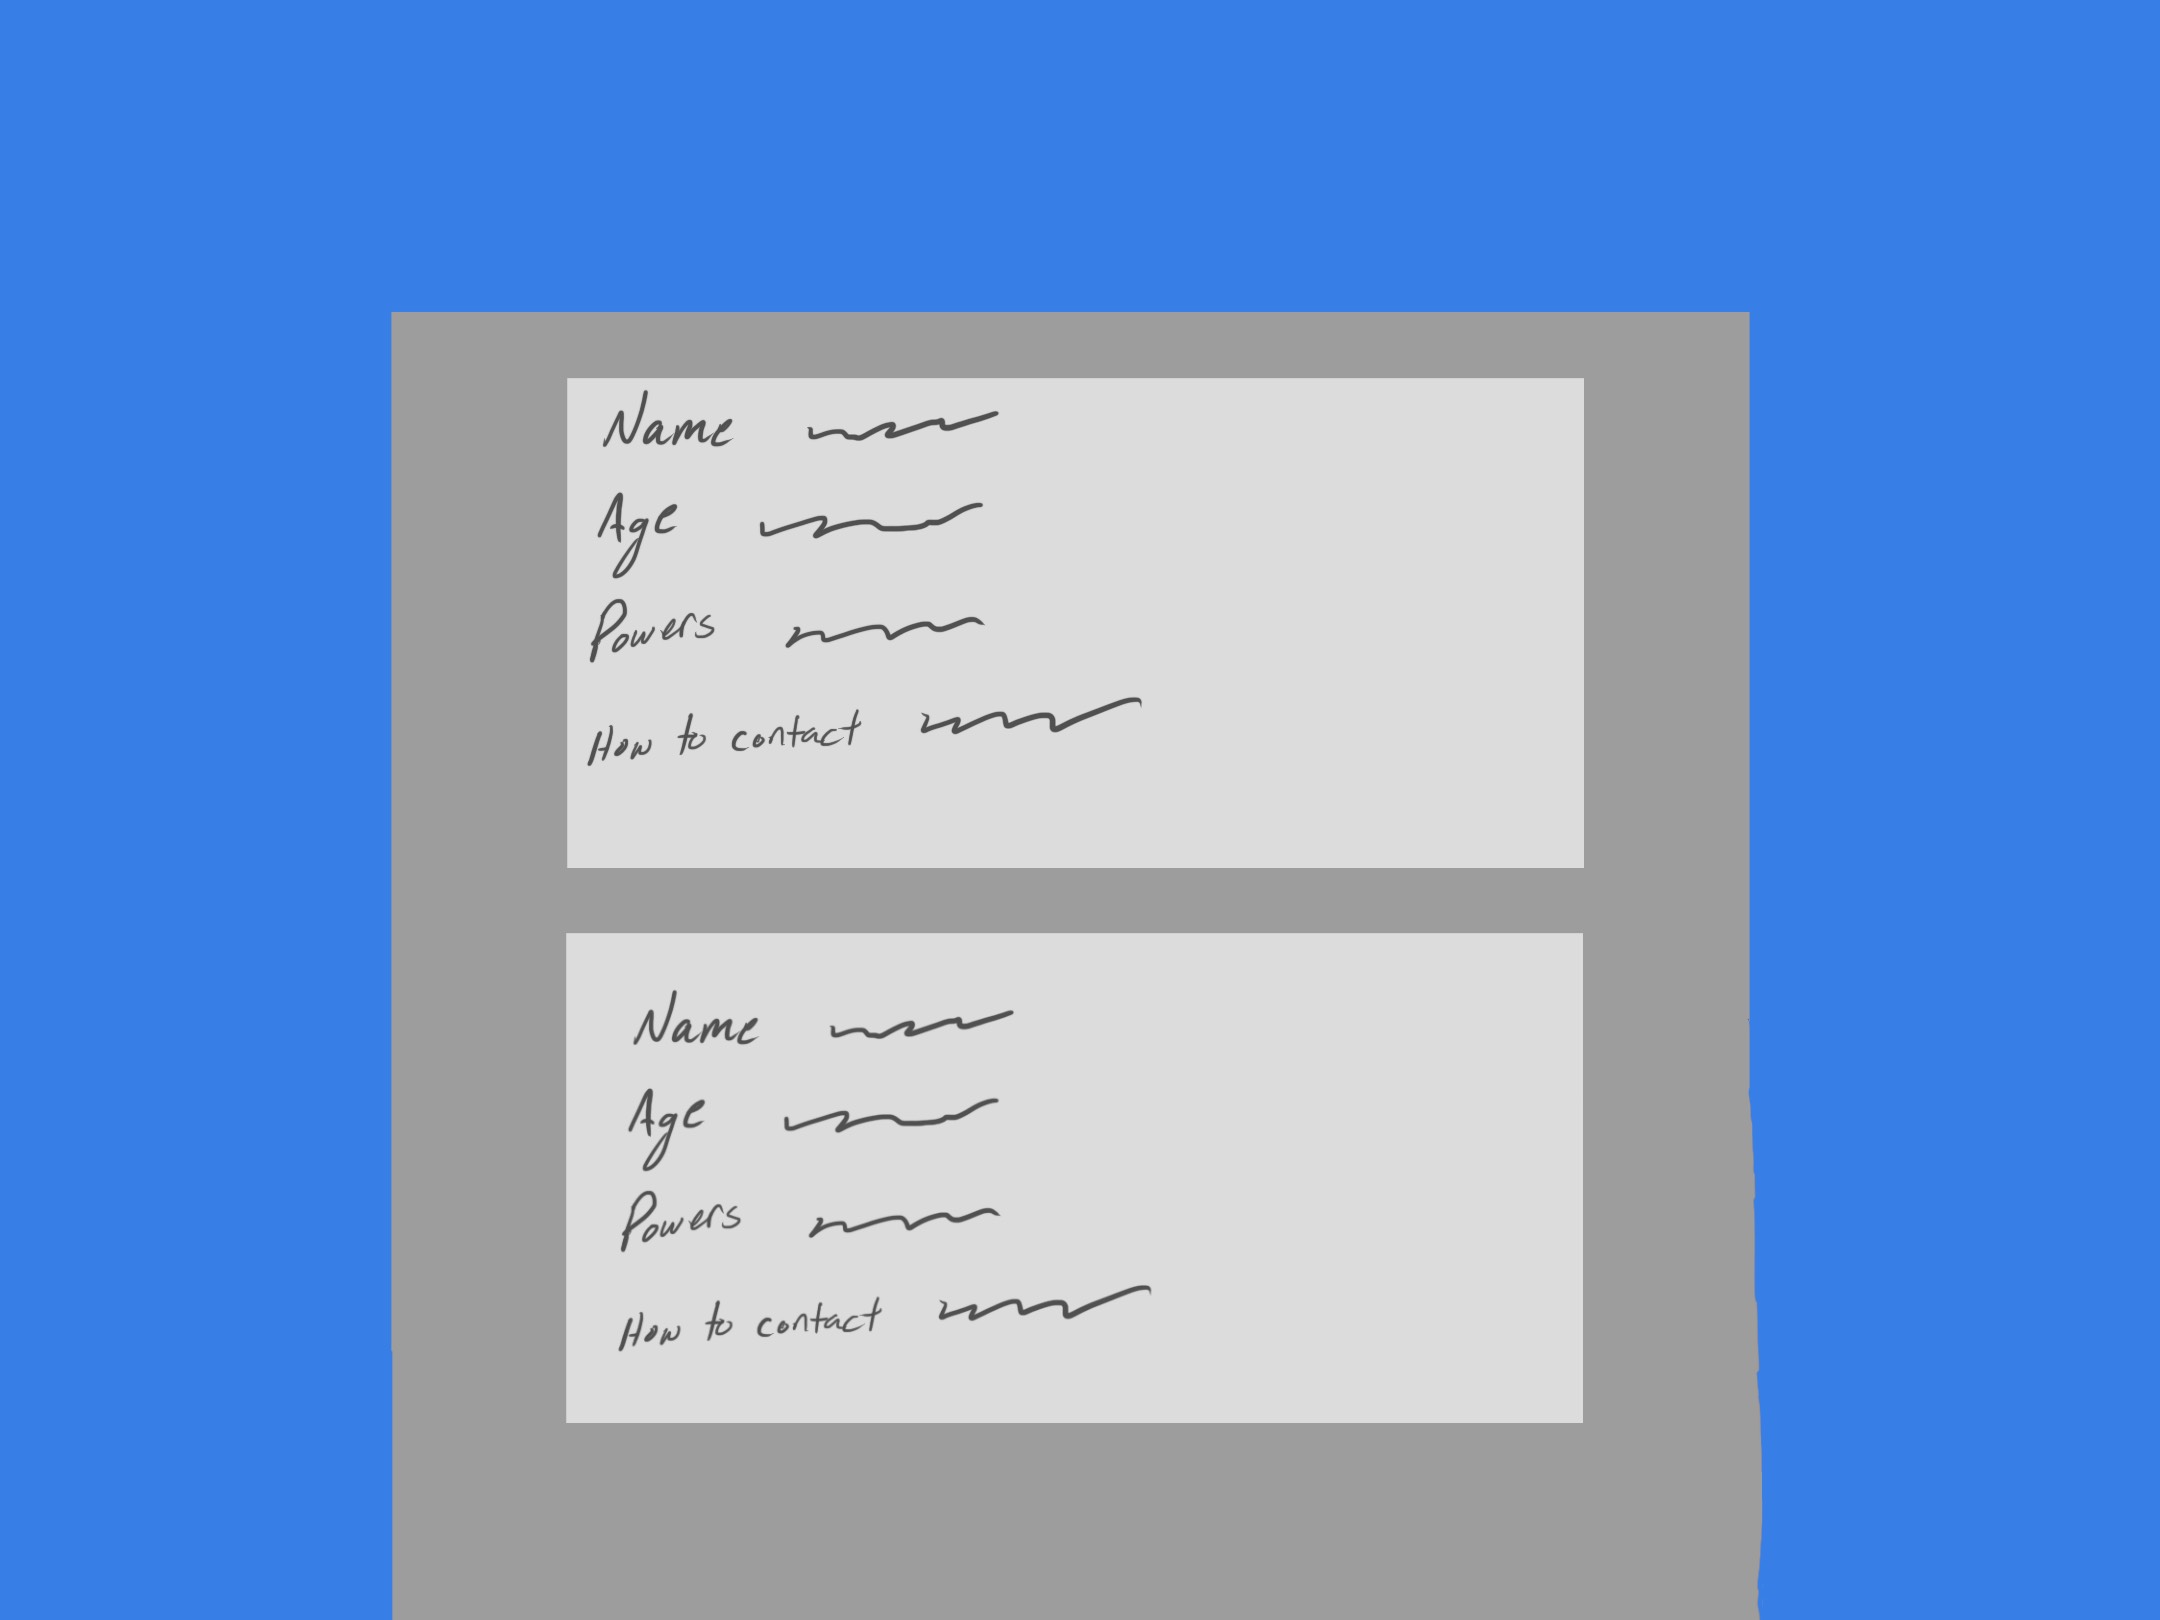 Name
Age
Powers
How to contact
Name
Age
Powers
How to contact